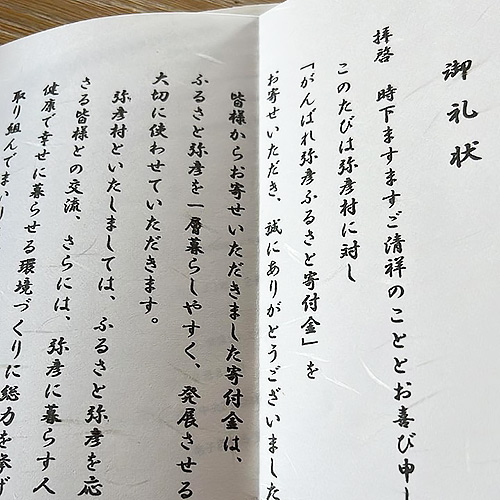 御礼状
拝啓 時下ますますご清祥のこととお喜び申し
このたびは弥彦村に対し
「がんばれ弥彦ふるさと寄付金」を
お寄せいただき、誠にありがとうございました
皆様からお寄せいただきました寄付金は、
ふるさと弥彦を一層暮らしやすく、発展させる
大切に使わせていただきます。
弥彦村といたしましては、ふるさと弥彦を応
さる皆様との交流、さらには、弥彦に暮らす人
健康で幸せに暮らせる環境づくりに総力を挙げ
取り組んでまいり